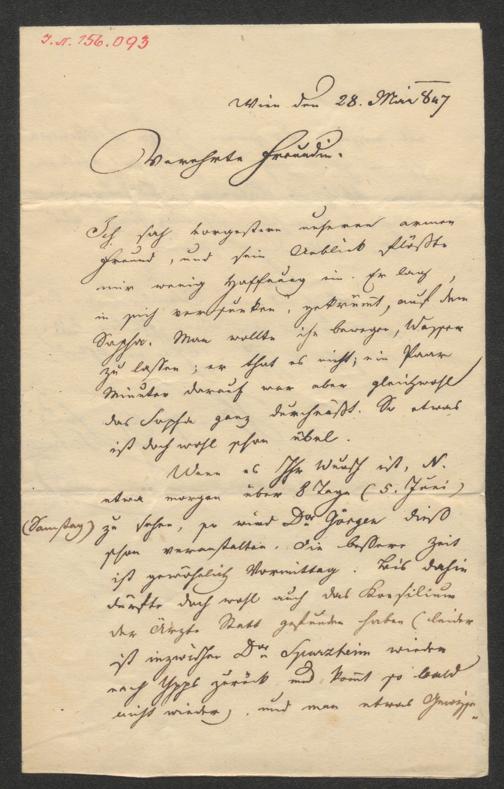 I. N. 156.093
Wien den 28. Mai 847
Verehrte Freundin.
Ich sah vorgestern unseren armen
Freund, und sein Anblick flößte
mir wenig Hoffnung ein. Er lag,
in sich versunken, gekrümt, auf dem
Sopha. Man wollte ihn bewegen, Wasser
zu lassen; er that es nicht; ein Paar
Minuten darauf war aber gleichwohl
das Sopha ganz durchnäßt. So etwas
ist doch wohl schon übel.
Wenn es Ihr Wunsch ist, N.
etwa morgen über 8 Tage (5. Juni)
(Samstag) zu sehen, so wird Dor Görgen dieß
schon veranstalten. Die bessere Zeit
ist gewöhnlich Vormittag. Bis dahin
dürfte doch wohl auch das Konsilium
der Ärzte Statt gefunden haben (leider
ist inzwischen Dor Spurzheim wieder
nach Ypps zurück und komt so bald
nicht wieder), und man etwas Gewisse-